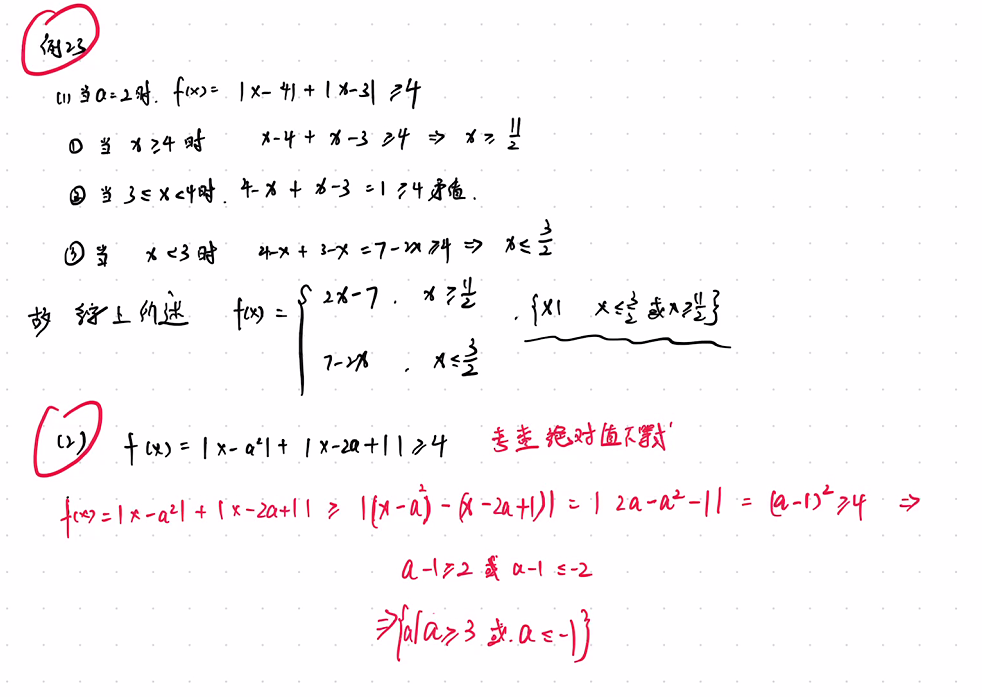 例23
(1) 当a=2时. f(x)= |x-4|+|x-3| ≥4
① 当 x≥4 时 x-4 + x-3 ≥4 ⇒ x≥ 11/2
② 当 3≤x<4时. 4-x + x-3 =1 ≥4 矛盾.
③ 当 x<3 时 4-x + 3-x =7-2x≥4 ⇒ x≤ 3/2
故 综上所述 f(x)= { 2x-7 . x≥11/2
7-2x . x≤3/2
. {x| x≤3/2 或x≥11/2}
(2) f(x)=|x-a²|+|x-2a+1|≥4 考查绝对值不等式
f(x)=|x-a²|+|x-2a+1| ≥ |(x-a²)-(x-2a+1)| = |2a-a²-1| = (a-1)²≥4 ⇒
a-1≥2 或 a-1≤-2
⇒{a|a≥3 或.a≤-1}